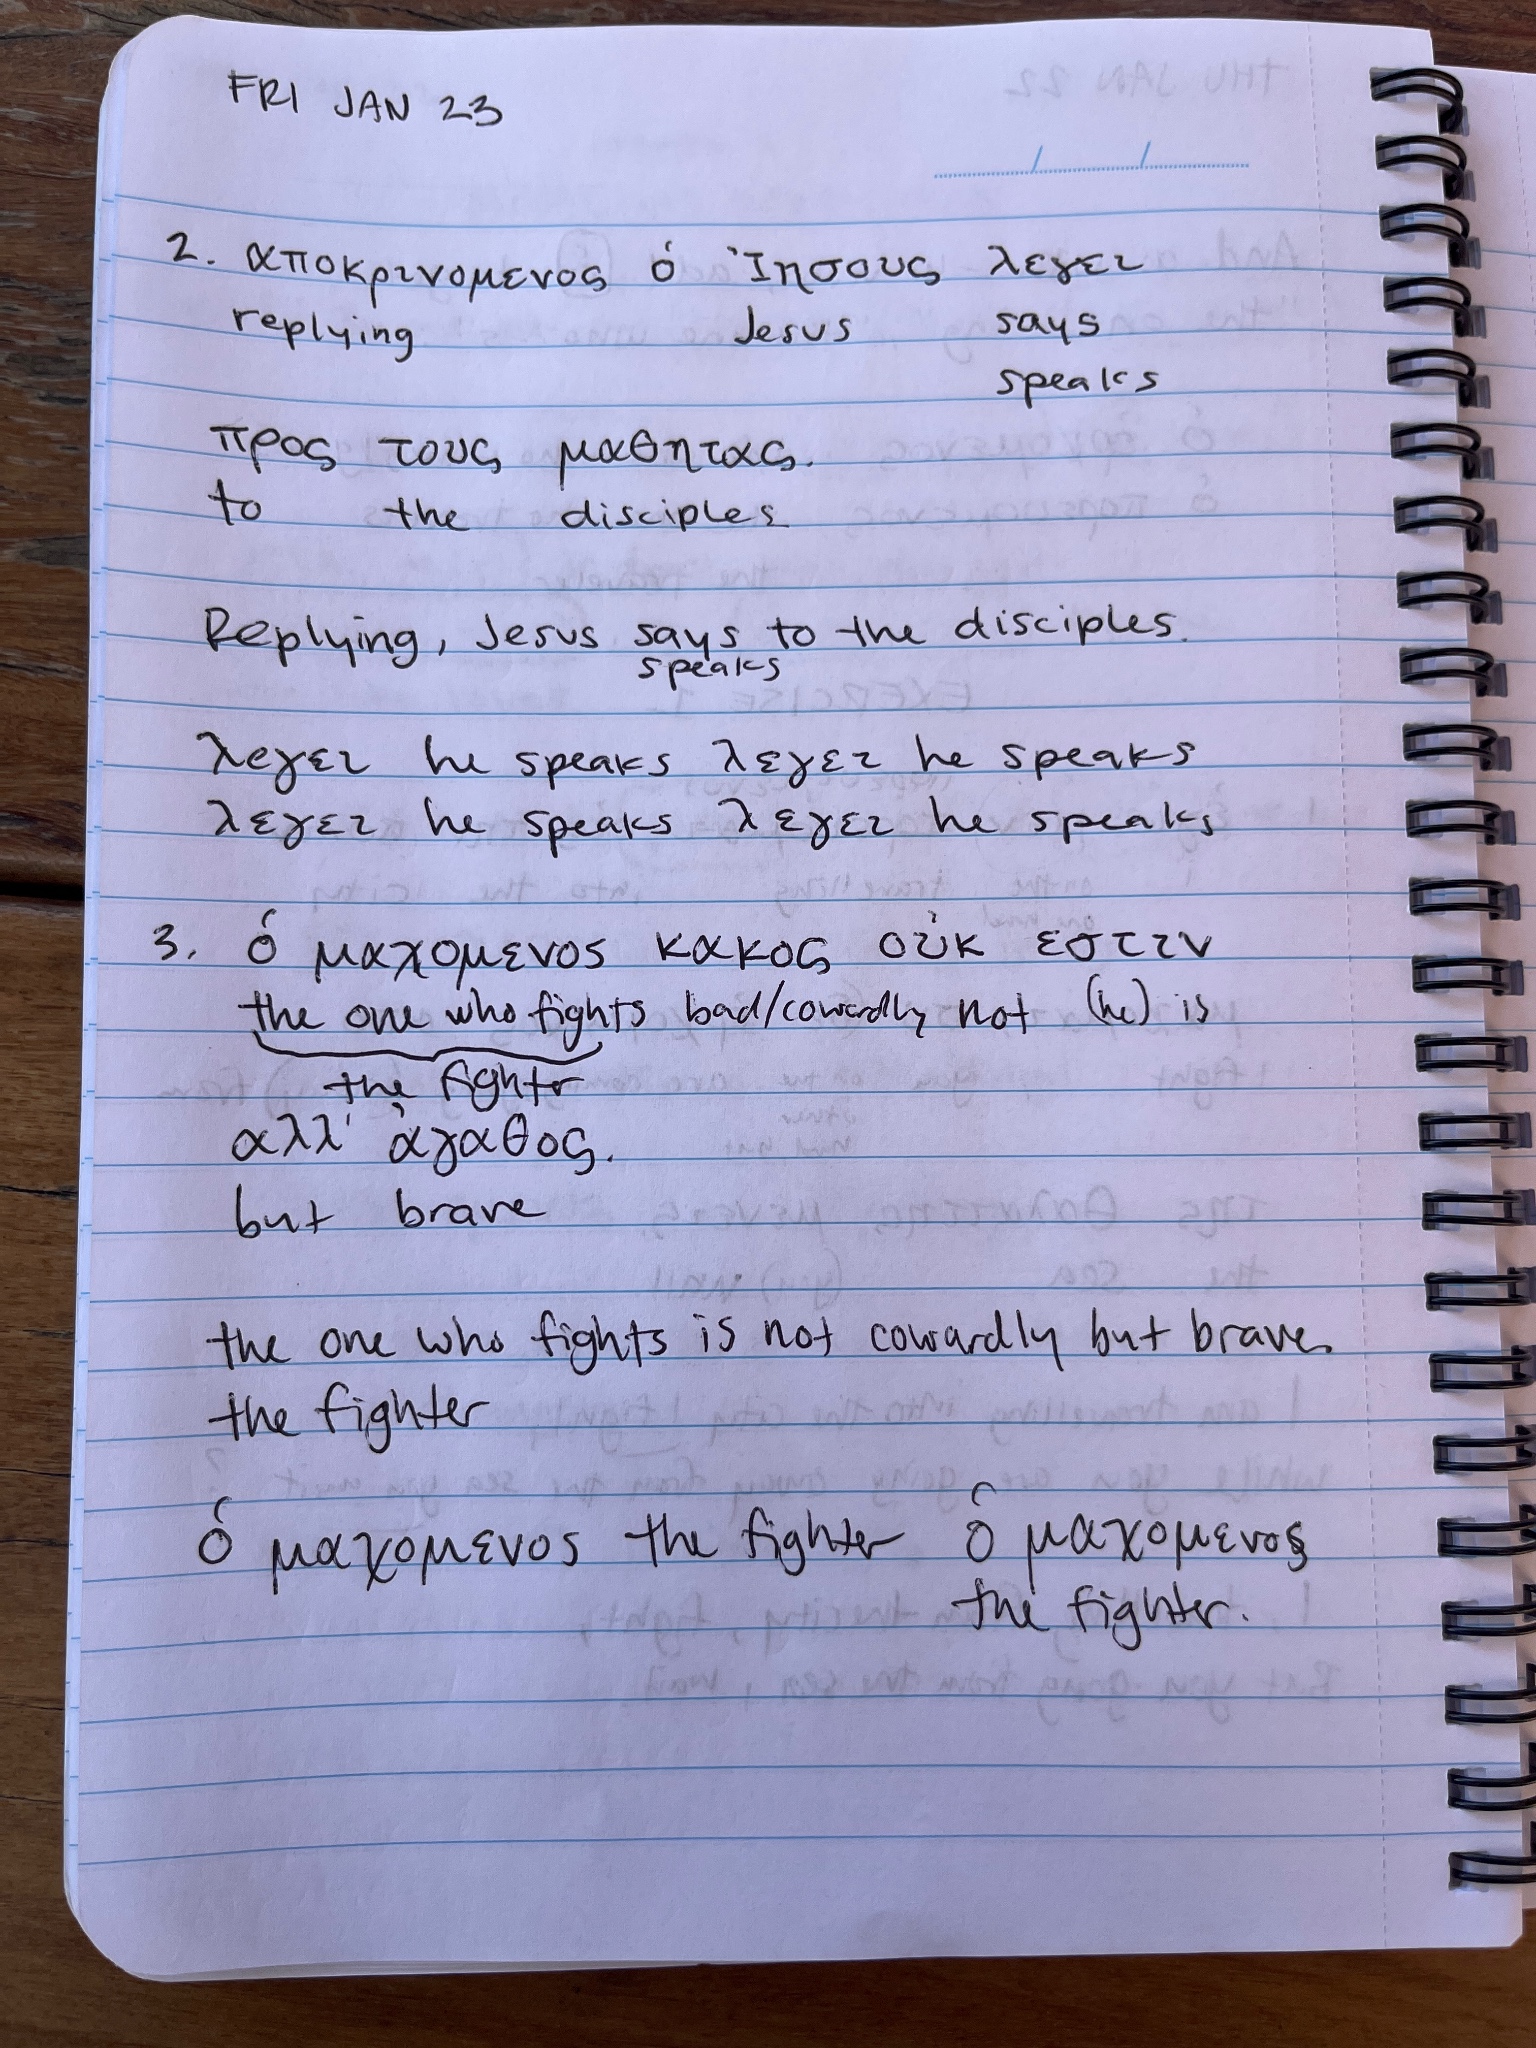 FRI JAN 23
2. αποκρινομενος ὁ Ἰησους λεγει
replying Jesus says
speaks
προς τους μαθητας.
to the disciples
Replying, Jesus says to the disciples.
speaks
λεγει he speaks λεγει he speaks
λεγει he speaks λεγει he speaks
3. ὁ μαχομενος κακος οὐκ εστιν
the one who fights bad/cowardly not (he) is
the fighter
αλλ' ἀγαθος.
but brave
the one who fights is not cowardly but brave.
the fighter
ὁ μαχομενος the fighter ὁ μαχομενος
the fighter.